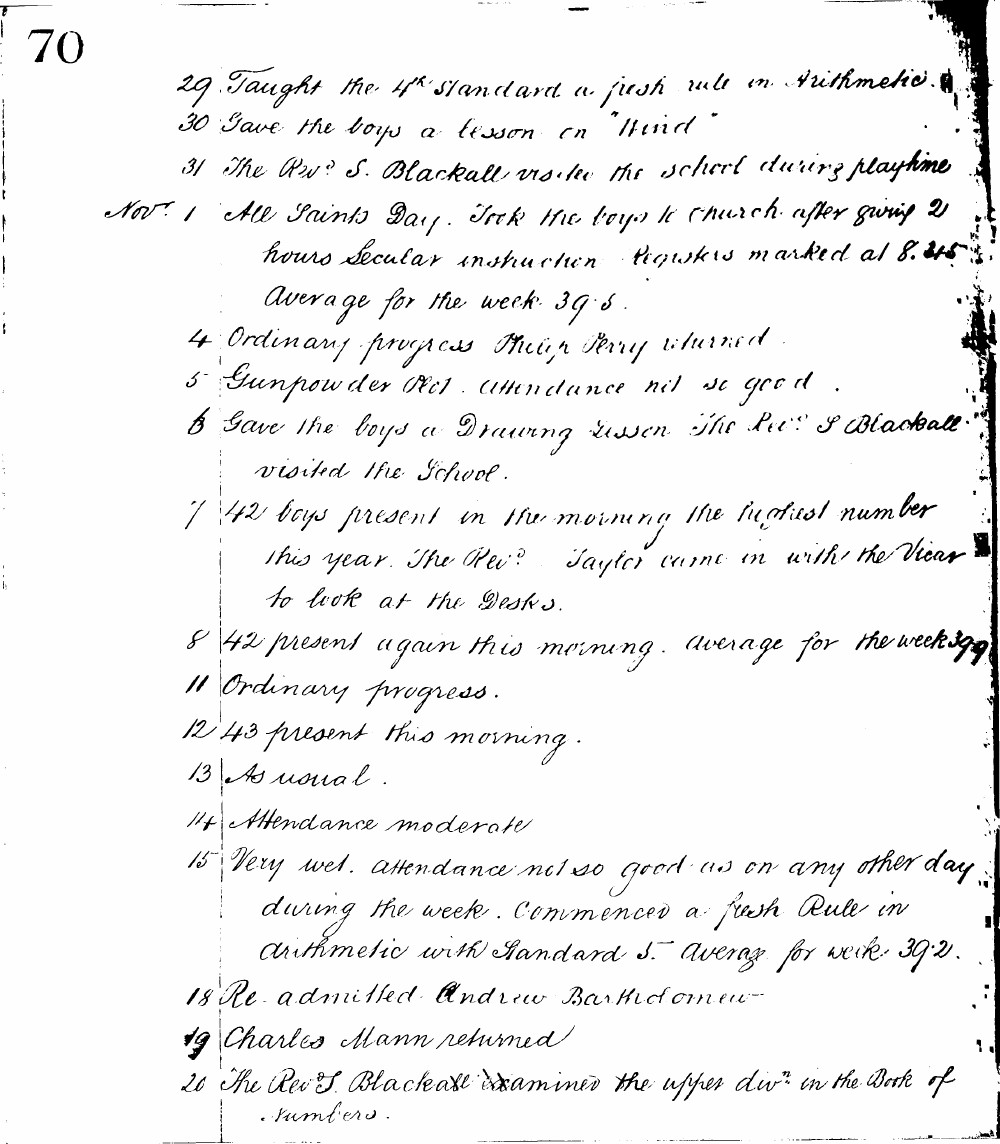 70
29 Taught the 4th Standard a fresh rule in Arithmetic.
30 Gave the boys a lesson on "Wind"
31 The Revd S. Blackall visited the school during playtime
Novr 1 All Saints Day. Took the boys to church after giving 2
hours Secular instruction Registers marked at 8.45
Average for the week 39.5.
4 Ordinary progress Philip Perry returned
5 Gunpowder Plot. Attendance not so good.
6 Gave the boys a Drawing Lesson The Revd S Blackall
visited the School.
7 42 boys present in the morning the highest number
this year. The Revd Taylor came in with the Vicar
to look at the Desks.
8 42 present again this morning. Average for the week 39.9
11 Ordinary progress.
12 43 present this morning.
13 As usual.
14 Attendance moderate
15 Very wet. Attendance not so good as on any other day
during the week. Commenced a fresh Rule in
Arithmetic with Standard 5. Average for week 39.2.
18 Re-admitted Andrew Bartholomew
19 Charles Mann returned
20 The Revd S. Blackall examined the upper divn in the Book of
Numbers.